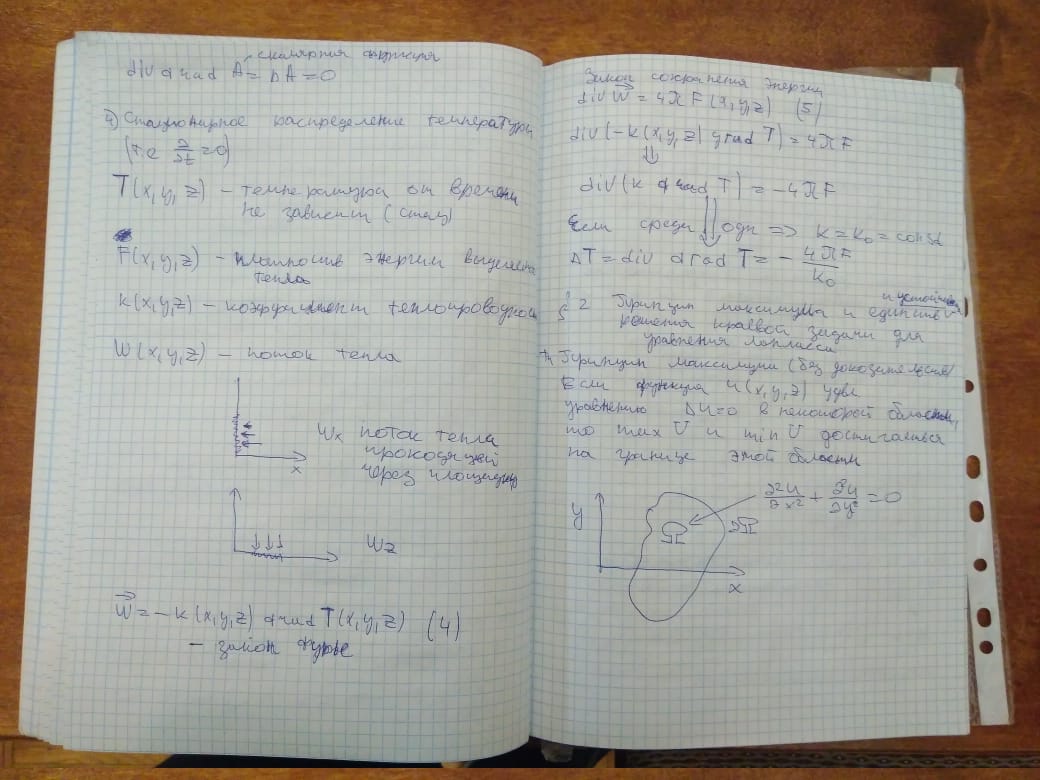 скалярная функция
div grad A = ΔA = 0
4) Стационарное распределение температуры
(т.е ∂/∂t = 0)
T(x,y,z) – температура от времени
не зависит (стац)
F(x,y,z) – плотность энергии выделения
тепла
k(x,y,z) – коэффициент теплопроводнос
W(x,y,z) – поток тепла
Wx поток тепла
проходящий
через площадку
x
Wz
W⃗ = –k(x,y,z) grad T(x,y,z) (4)
– закон Фурье
Закон сохранения энергии
div W⃗ = 4πF(x,y,z) (5)
div(–k(x,y,z) grad T) = 4πF
⇓
div(k grad T) = –4πF
Если среда одн => k = k₀ = const
ΔT = div grad T = – 4πF/k₀
и устойчив
§ 2 Принцип максимума и единств
решения краевой задачи для
уравнения Лапласа
Принцип максимума (без доказательства)
Если функция u(x,y,z) удвл
уравнению Δu=0 в некоторой области,
то max U и min U достигается
на границе этой области
∂²u/∂x² + ∂²u/∂y² = 0
y
Ω
∂Ω
x